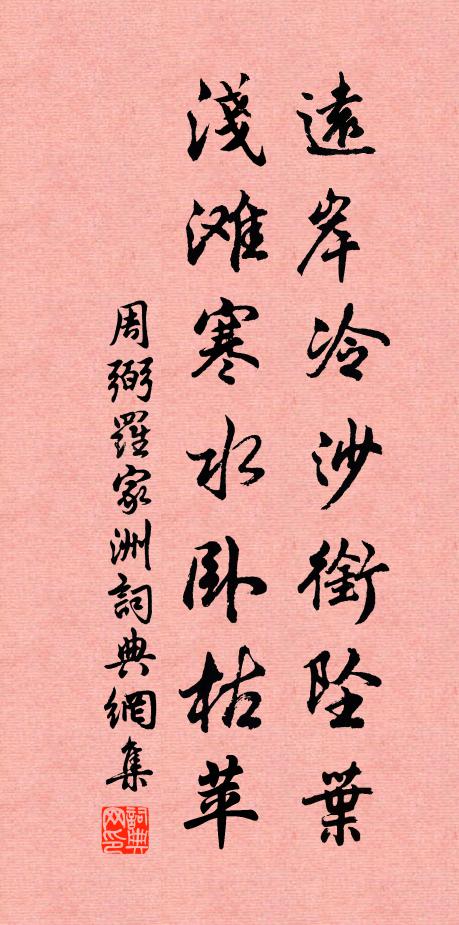 遠岸冷沙銜墜葉
淺滩寒水卧枯苹
周弼羅家洲詞典網集
詞典網印